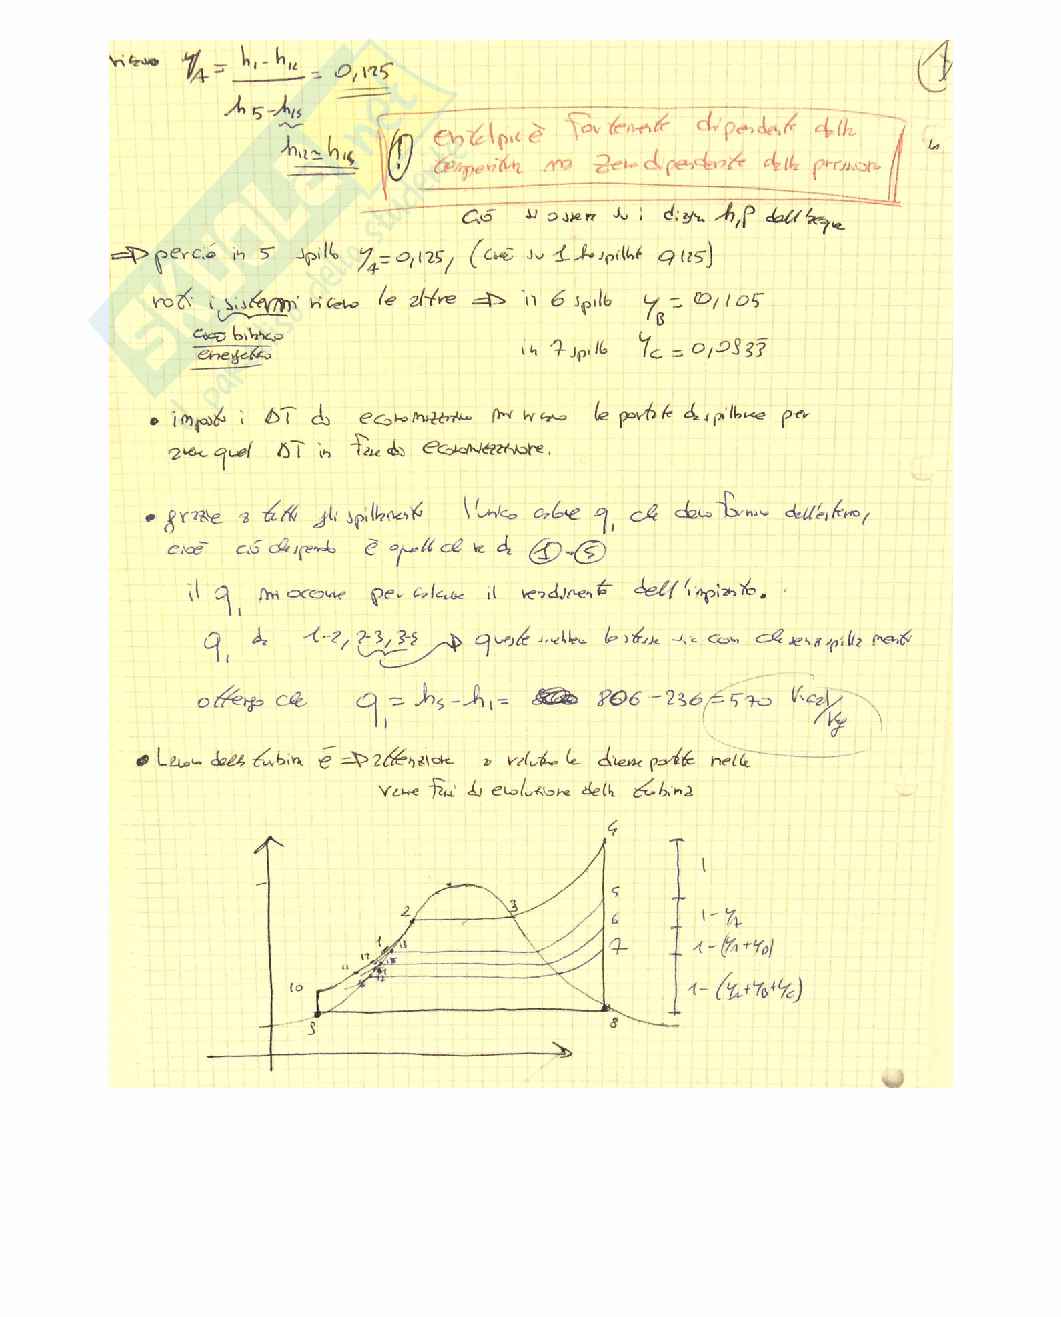 ricavo y_A = (h_1 - h_12) / (h_5 - h_15) = 0,125
h_12 ≃ h_15
1
! entalpia è fortemente dipendente della
temperatura ma dipendente della pressione
Ciò si osserva su i diagr h,p dell'acqua
⇒ perciò in 5 spillo y_A = 0,125, (cioè su 1 ho spillato 0,125)
i sistemi ricavo le altre ⇒ in 6 spillo y_B = 0,105
bilancio
energetico
in 7 spillo y_C = 0,0933
• imposto i ΔT do economizzatore mi ricavo le portate da spillare per
aver quel ΔT in economizzatore.
• grazie a tutti gli spillamenti l'unico calore q_1 che devo fornire dall'esterno,
cioè ciò che spendo è quello che va da 1 - 5
il q_1 mi occorre per calcolare il rendimento dell'impianto.
q_1 da 1-2, 2-3, 3-5 ⇒ queste lo stesso sia con che senza spillamento
ottengo che q_1 = h_5 - h_1 = 806 - 236 = 570 Kcal/Kg
• Lavoro della turbina è ⇒ attenzione a valutare le diverse portate nelle
varie fasi di evoluzione della turbina
4
5
3
2
6
7
1
13
17
11
10
9
8
1
1 - y_A
1 - (y_A + y_B)
1 - (y_A + y_B + y_C)
SKUOLA.net